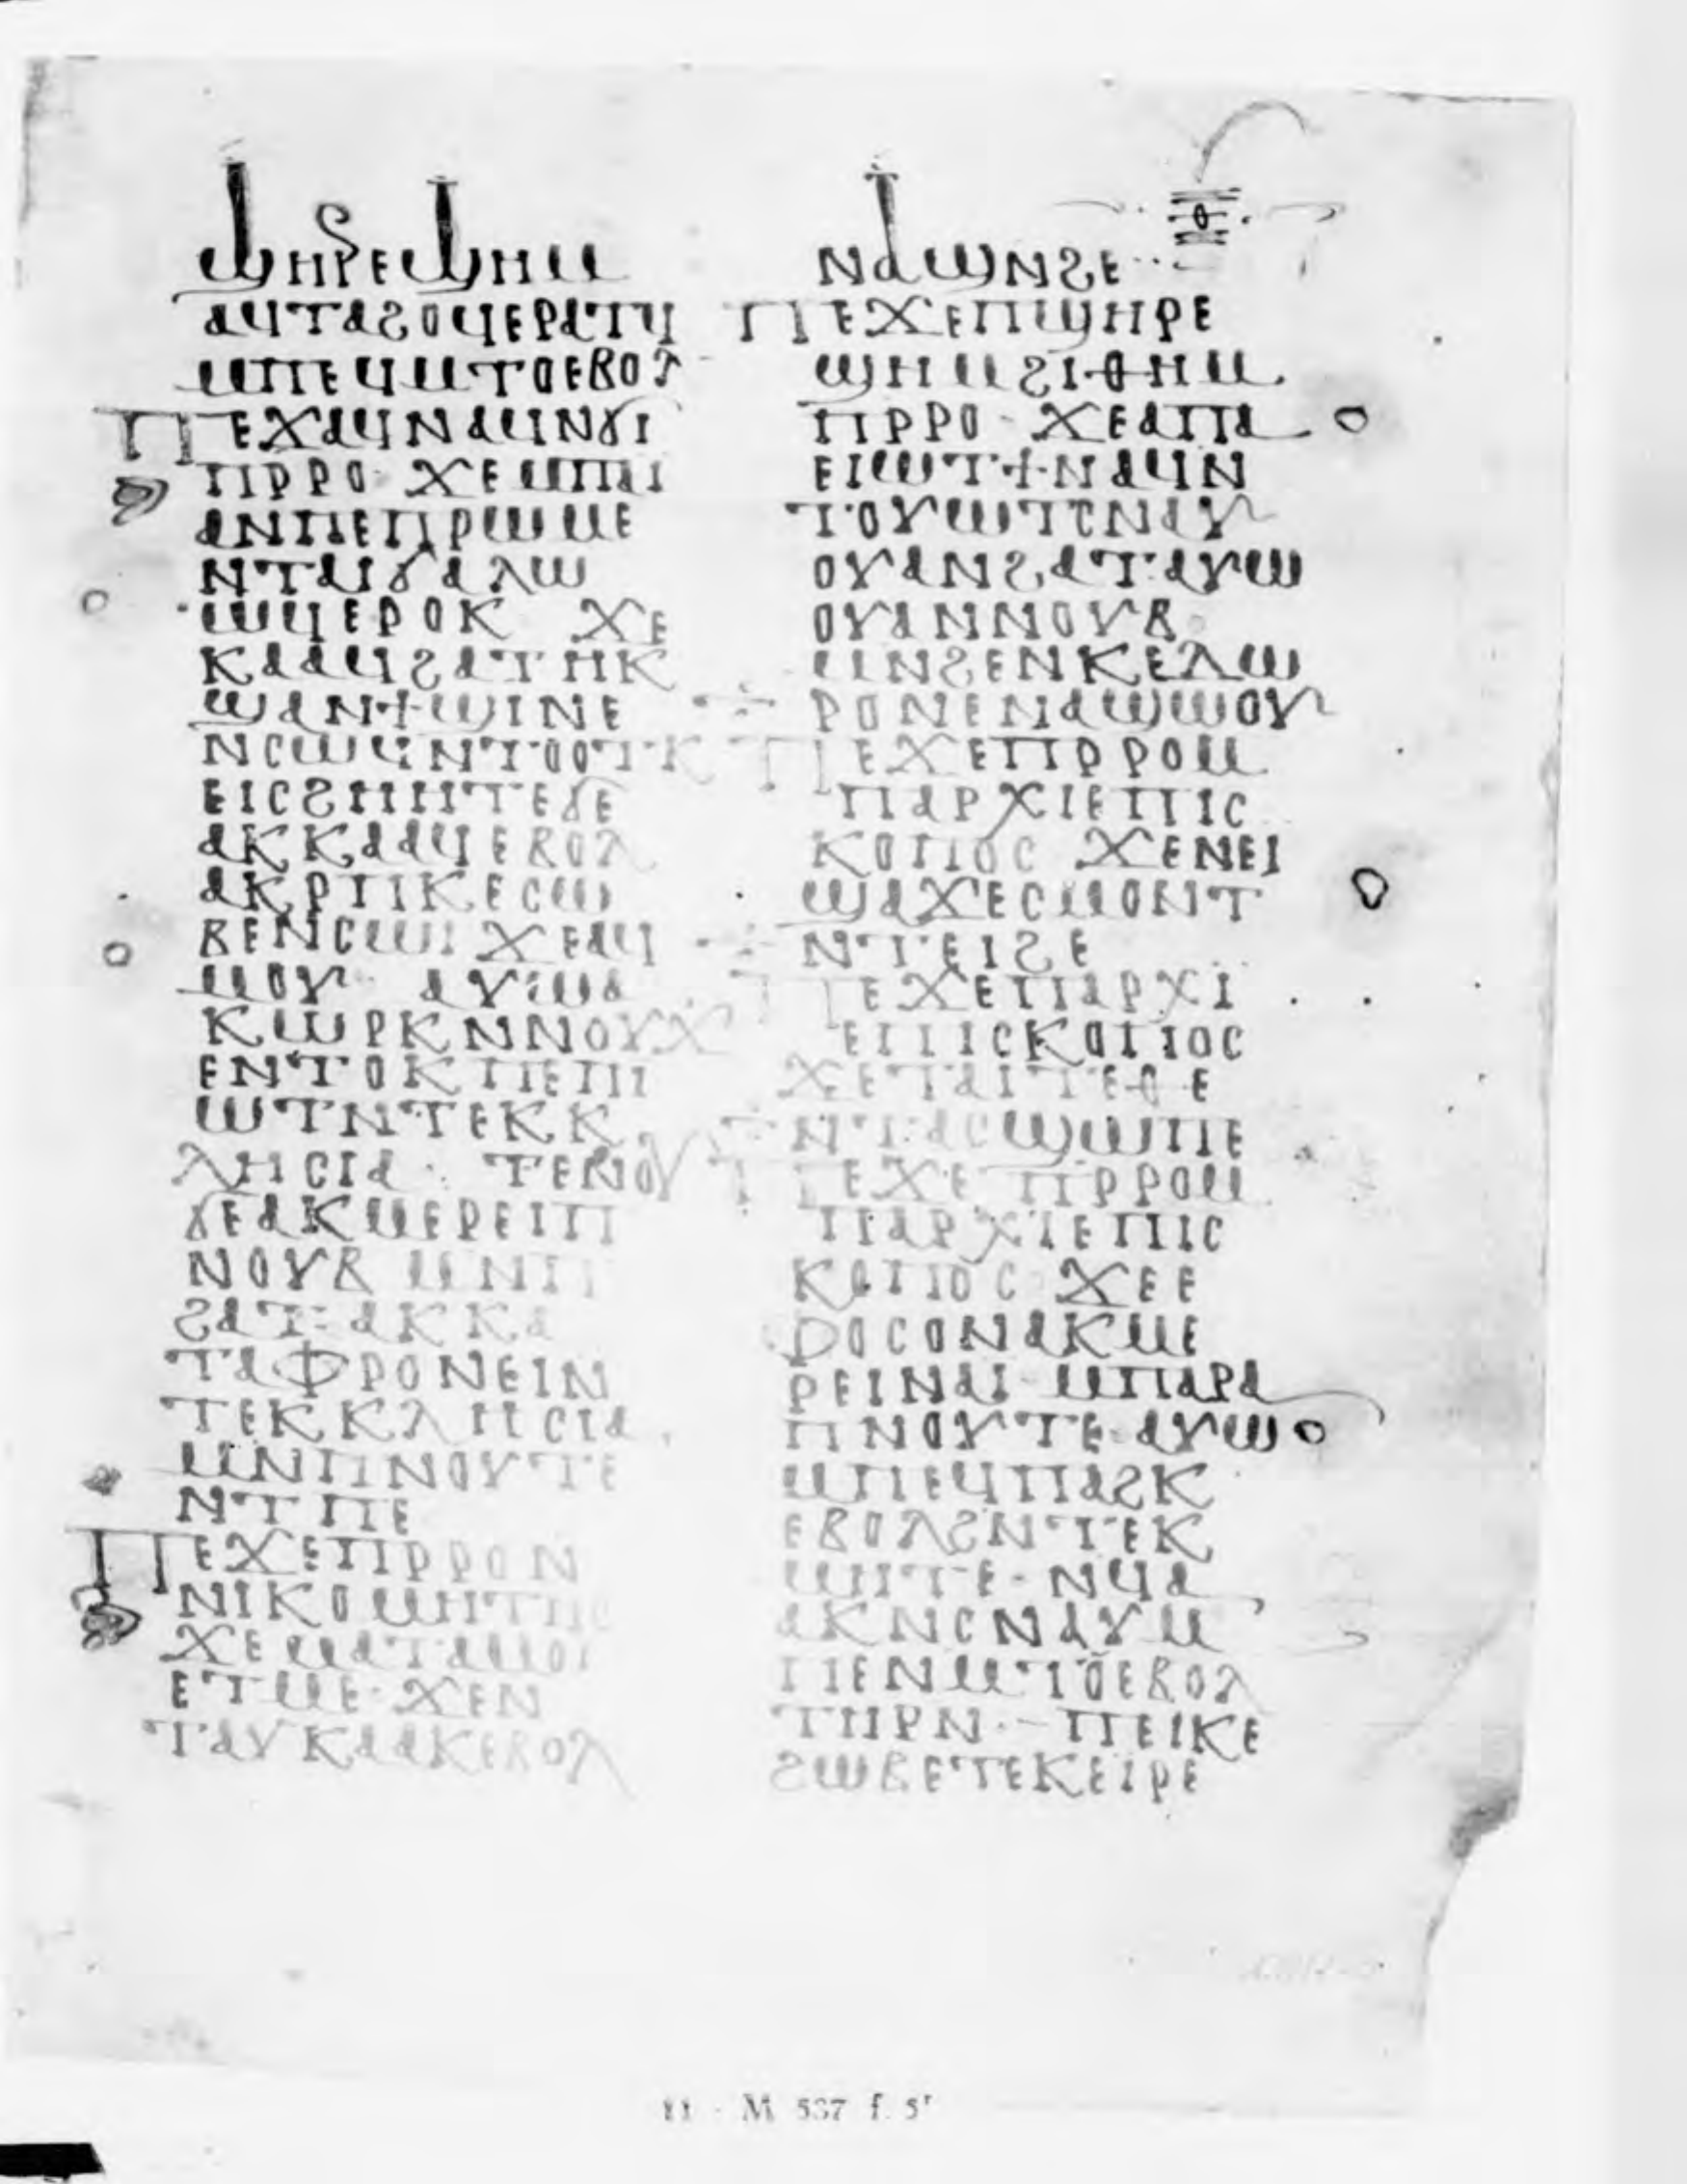 ⲑ
ϣⲏⲣⲉϣⲏⲙ
ⲁϥⲧⲁϩⲟϥⲉⲣⲁⲧϥ
ⲙⲡⲉϥⲙⲧⲟⲉⲃⲟⲗ
ⲡⲉϫⲁϥⲛⲁϥⲛϭⲓ
ⲡⲣⲣⲟ ϫⲉⲙⲡⲁⲓ
ⲁⲛⲡⲉⲡⲣⲱⲙⲉ
ⲛⲧⲁⲓϭⲁⲗⲱ
ⲱϥⲉⲣⲟⲕ ϫⲉ
ⲕⲁⲁϥϩⲁⲧⲏⲕ
ϣⲁⲛϯϣⲓⲛⲉ
ⲛⲥⲱϥⲛⲧⲟⲟⲧⲕ
ⲉⲓⲥϩⲏⲏⲧⲉϭⲉ
ⲁⲕⲕⲁⲁϥⲉⲃⲟⲗ
ⲁⲕⲣⲡⲕⲉⲥⲱ
ⲃⲉⲛⲥⲱⲓ ϫⲉⲁϥ
ⲙⲟⲩ ⲁⲩⲱⲁ
ⲕⲱⲣⲕⲛⲛⲟⲩϫ
ⲉⲛⲧⲟⲕⲡⲉⲡⲓ
ⲱⲧⲛⲧⲉⲕⲕ
ⲗⲏⲥⲓⲁ· ⲧⲉⲛⲟⲩ
ϭⲉⲁⲕⲙⲉⲣⲉⲡⲓ
ⲛⲟⲩⲃ ⲙⲛⲡ
ϩⲁⲧ· ⲁⲕⲕⲁ
ⲧⲁⲫⲣⲟⲛⲉⲓⲛ
ⲧⲉⲕⲕⲗⲏⲥⲓⲁ
ⲙⲛⲡⲛⲟⲩⲧⲉ
ⲛⲧⲡⲉ
ⲡⲉϫⲉⲡⲣⲣⲟⲛ
ⲛⲓⲕⲟⲙⲏⲧⲏⲥ
ϫⲉⲙⲁⲧⲁⲙⲟⲓ
ⲉⲧⲙⲉ· ϫⲉⲛ
ⲧⲁⲩⲕⲁⲁⲕⲉⲃⲟⲗ
ⲛⲁϣⲛϩⲉ··
ⲡⲉϫⲉⲡϣⲏⲣⲉ
ϣⲏⲙϩⲓⲑⲏⲙ
ⲡⲣⲣⲟ· ϫⲉⲁⲡⲁ
ⲉⲓⲱⲧϯⲛⲁϥⲛ
ⲧⲟⲩⲱⲧⲥⲛⲁⲩ
ⲟⲩⲁⲛϩⲁⲧ·ⲁⲩⲱ
ⲟⲩⲁⲛⲛⲟⲩⲃ
ⲙⲛϩⲉⲛⲕⲉⲇⲱ
ⲣⲟⲛⲉⲛⲁϣⲱⲟⲩ
ⲡⲉϫⲉⲡⲣⲣⲟⲙ
ⲡⲁⲣⲭⲓⲉⲡⲓⲥ
ⲕⲟⲡⲟⲥ ϫⲉⲛⲉⲓ
ϣⲁϫⲉⲥⲙⲟⲛⲧ
ⲛⲧⲉⲓϩⲉ
ⲡⲉϫⲉⲡⲁⲣⲭⲓ
ⲉⲡⲓⲥⲕⲟⲡⲟⲥ
ϫⲉⲧⲁⲓⲧⲉⲑⲉ
ⲛⲧⲁⲥϣⲱⲡⲉ
ⲡⲉϫⲉ ⲡⲣⲣⲟⲙ
ⲡⲁⲣⲭⲓⲉⲡⲓⲥ
ⲕⲟⲡⲟⲥ ϫⲉⲉ
ⲫⲟⲥⲟⲛⲁⲕⲙⲉ
ⲣⲉⲓⲛⲁⲓ ⲙⲡⲁⲣⲁ
ⲡⲛⲟⲩⲧⲉ·ⲁⲩⲱ
ⲙⲡⲉϥⲡⲁϩⲕ
ⲉⲃⲟⲗϩⲛⲧⲉⲕ
ⲙⲏⲧⲉ· ⲛϥⲁ
ⲁⲕⲛⲥⲛⲁⲩⲙ
ⲡⲉⲛⲙⲧⲟⲉⲃⲟⲗ
ⲧⲏⲣⲛ·– ⲡⲉⲓⲕⲉ
ϩⲱⲃⲉⲧⲉⲕⲉⲓⲣⲉ
11 - M 537 f. 5r